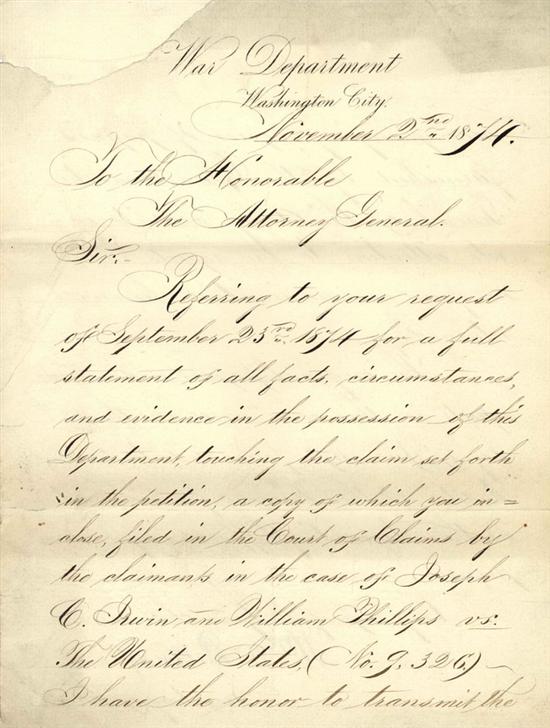 War Department
Washington City.
November 2nd 1874.
To the Honorable
The Attorney General.
Sir:-
Referring to your request
of September 23rd 1874 for a full
statement of all facts, circumstances,
and evidence in the possession of this
Department, touching the claim set forth
in the petition, a copy of which you in=
close, filed in the Court of Claims by
the claimants in the case of Joseph
C. Irwin and William Phillips vs.
The United States, (No. 9,326,) —
I have the honor to transmit the